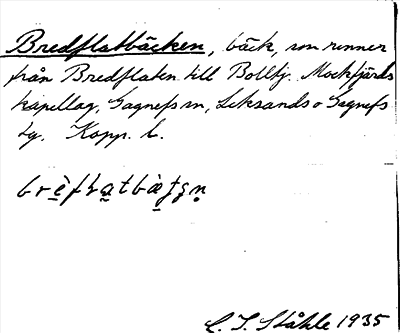 Bredflatbäcken, bäck, som rinner
från Bredflaten till Bolltj. Mockfjärds
kapellag, Gagnefs sn, Leksands o Gagnefs
tg. Kopp. l.
C. I. Ståhle 1935